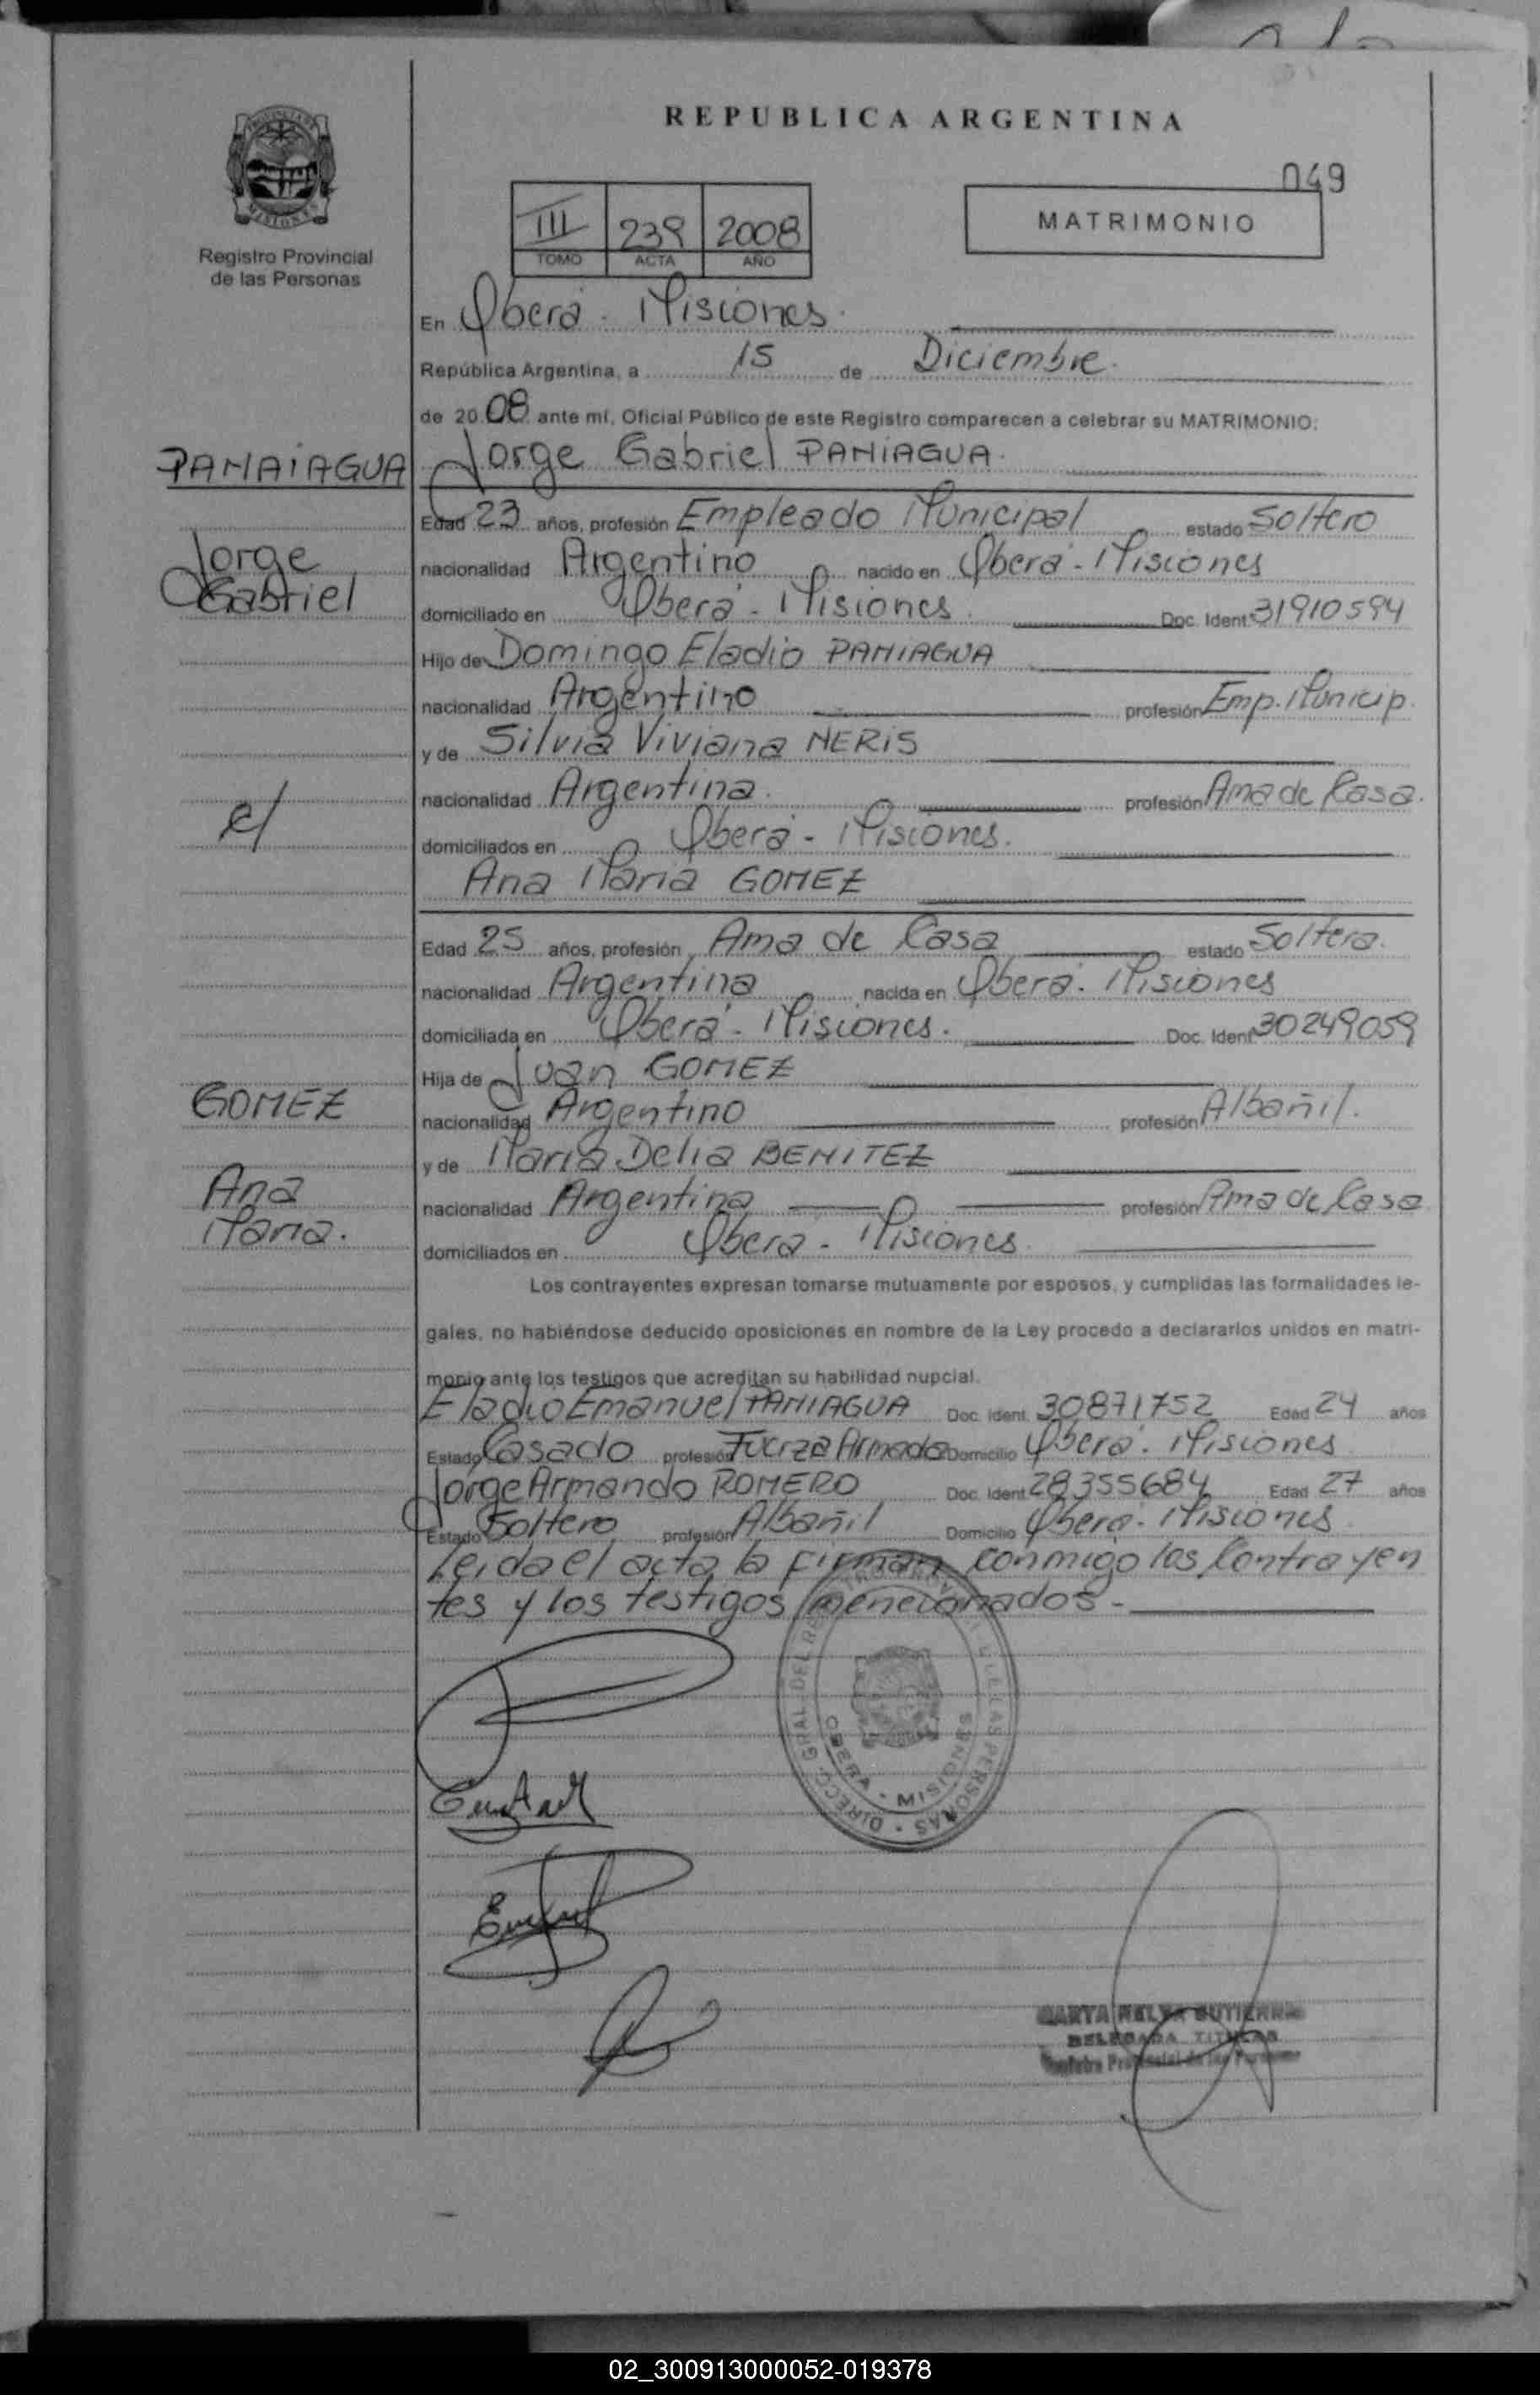 REPUBLICA ARGENTINA
049
MATRIMONIO
Registro Provincial
de las Personas
III 239 2008
TOMO ACTA AÑO
En Oberá - Misiones.
República Argentina, a 15 de Diciembre.
de 2008 ante mí, Oficial Público de este Registro comparecen a celebrar su MATRIMONIO:
PANAIAGUA
Jorge Gabriel PANIAGUA.
Edad 23 años, profesión Empleado Municipal estado Soltero
Jorge
Gabriel
nacionalidad Argentino nacido en Oberá - Misiones
domiciliado en Oberá - Misiones. Doc. Ident. 31910594
Hijo de Domingo Eladio PANIAGUA
nacionalidad Argentino profesión Emp. Municip.
y de Silvia Viviana NERIS
c/
nacionalidad Argentina. profesión Ama de Casa.
domiciliados en Oberá - Misiones.
Ana Maria GOMEZ
Edad 25 años, profesión Ama de Casa estado Soltera.
nacionalidad Argentina nacida en Oberá - Misiones
domiciliada en Oberá - Misiones. Doc. Ident. 30249059
Hija de Juan GOMEZ
GOMEZ
nacionalidad Argentino profesión Albañil.
y de Maria Delia BENITEZ
Ana
Maria.
nacionalidad Argentina profesión Ama de Casa
domiciliados en Oberá - Misiones.
Los contrayentes expresan tomarse mutuamente por esposos, y cumplidas las formalidades le-
gales, no habiéndose deducido oposiciones en nombre de la Ley procedo a declararlos unidos en matri-
monio ante los testigos que acreditan su habilidad nupcial.
Eladio Emanuel PANIAGUA Doc. Ident. 30871752 Edad 24 años
Estado Casado profesión Fuerza Armada Domicilio Oberá - Misiones
Jorge Armando ROMERO Doc. Ident. 28355684 Edad 27 años
Estado Soltero profesión Albañil Domicilio Oberá - Misiones
Leida el acta la firman conmigo los Contrayen
tes y los testigos mencionados -
DIRECC. GRAL. DEL REGISTRO PROVINCIAL DE LAS PERSONAS
OBERA - MISIONES
MARTA NELVA GUTIERREZ
DELEGADA TITULAR
Registro Provincial de las Personas
02_300913000052-019378